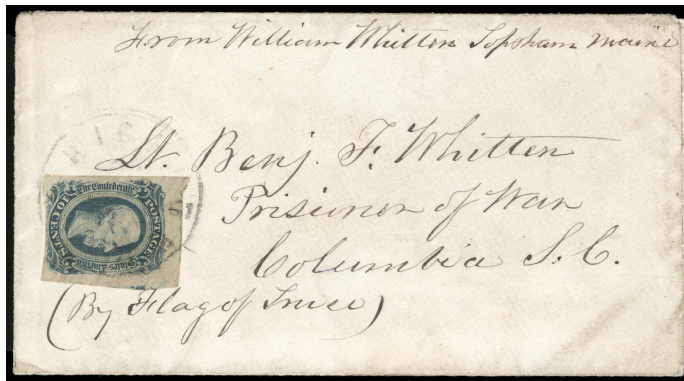 From William Whitten Topsham Maine
Lt. Benj. F. Whitten
Prisioner of War
Columbia S. C.
(By Flag of Truce)
The Confederate
States of America
POSTAGE